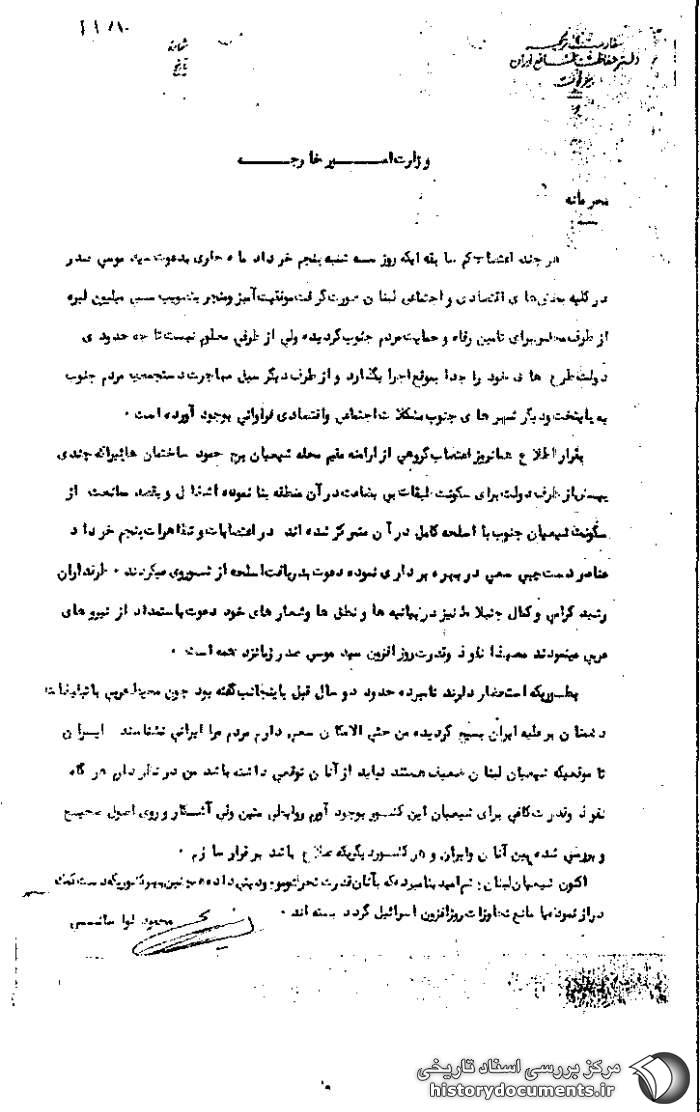 ۱۰/ ۱۱
شماره
تاریخ
سفارت ترکیه
دفتر حفاظت منافع ایران
بیروت
وزارت امـــــــور خارجـــــــه
محرمانه
هر چند اعتصاب کم سابقه ایکه روز سه شنبه پنجم خرداد ماه جاری بدعوت سید موسی صدر
در کلیه بخش های اقتصادی و اجتماعی لبنان صورت گرفت موفقیت آمیز و منجر بتصویب سی میلیون لیره
از طرف مجلس برای تامین رفاه و حمایت مردم جنوب گردیده ولی از طرفی معلوم نیست تا چه حدودی
دولت طرح های خود را جدا بموقع اجرا بگذارد و از طرف دیگر سیل مهاجرت دستجمعی مردم جنوب
به پایتخت و دیگر شهرهای جنوب مشکلات اجتماعی و اقتصادی فراوانی بوجود آورده است ۰
بقرار اطلاع همان روز اعتصاب گروهی از ارامنه مقیم محله شیعیان برج حمود ساختمان های نیمه چندی
پیش از طرف دولت برای سکونت طبقات بی بضاعت در آن منطقه بنا نموده اشغال و بقصد ممانعت از
سکونت شیعیان جنوب با اسلحه کامل در آن متمرکز شده اند در اعتصابات و تظاهرات پنجم خرداد
عناصر دست چپی سعی در بهره برداری نموده دعوت بدریافت اسلحه از شوروی میکردند ۰ طرفداران
رشید کرامی و کمال جنبلاط نیز در بیانیه ها و نطق ها و شعارهای خود دعوت باستمداد از نیروهای
عربی مینمودند معهذا نفوذ و قدرت روز افزون سید موسی صدر زبانزد همه است ۰
بطوریکه استحضار دارند نامبرده حدود دو سال قبل باینجانب گفته بود چون محیط عربی با تبلیغات
دشمنان بر علیه ایران بسیج گردیده من حتی الامکان سعی دارم مردم مرا ایرانی نشناسند ایران
تا موقعیکه شیعیان لبنان ضعیف هستند نباید از آنان توقعی داشته باشد من در نظر دارم هر گاه
نفوذ و قدرت کافی برای شیعیان این کشور بوجود آورم روابطی متین ولی آشکار و روی اصول صحیح
و بررسی شده بین آنان و ایران و هر کشور دیگریکه صلاح باشد برقرار سازم ۰
اکنون شیعیان لبنان چشم امید بنامبرده که بآنان قدرت تحرک و موجودیتی داده و همچنین بهر کشوریکه دست کمک
دراز نموده یا مانع تجاوزات روز افزون اسرائیل گردد بسته اند ۰
محمود لواسانی
مرکز بررسی اسناد تاریخی
historydocuments.ir